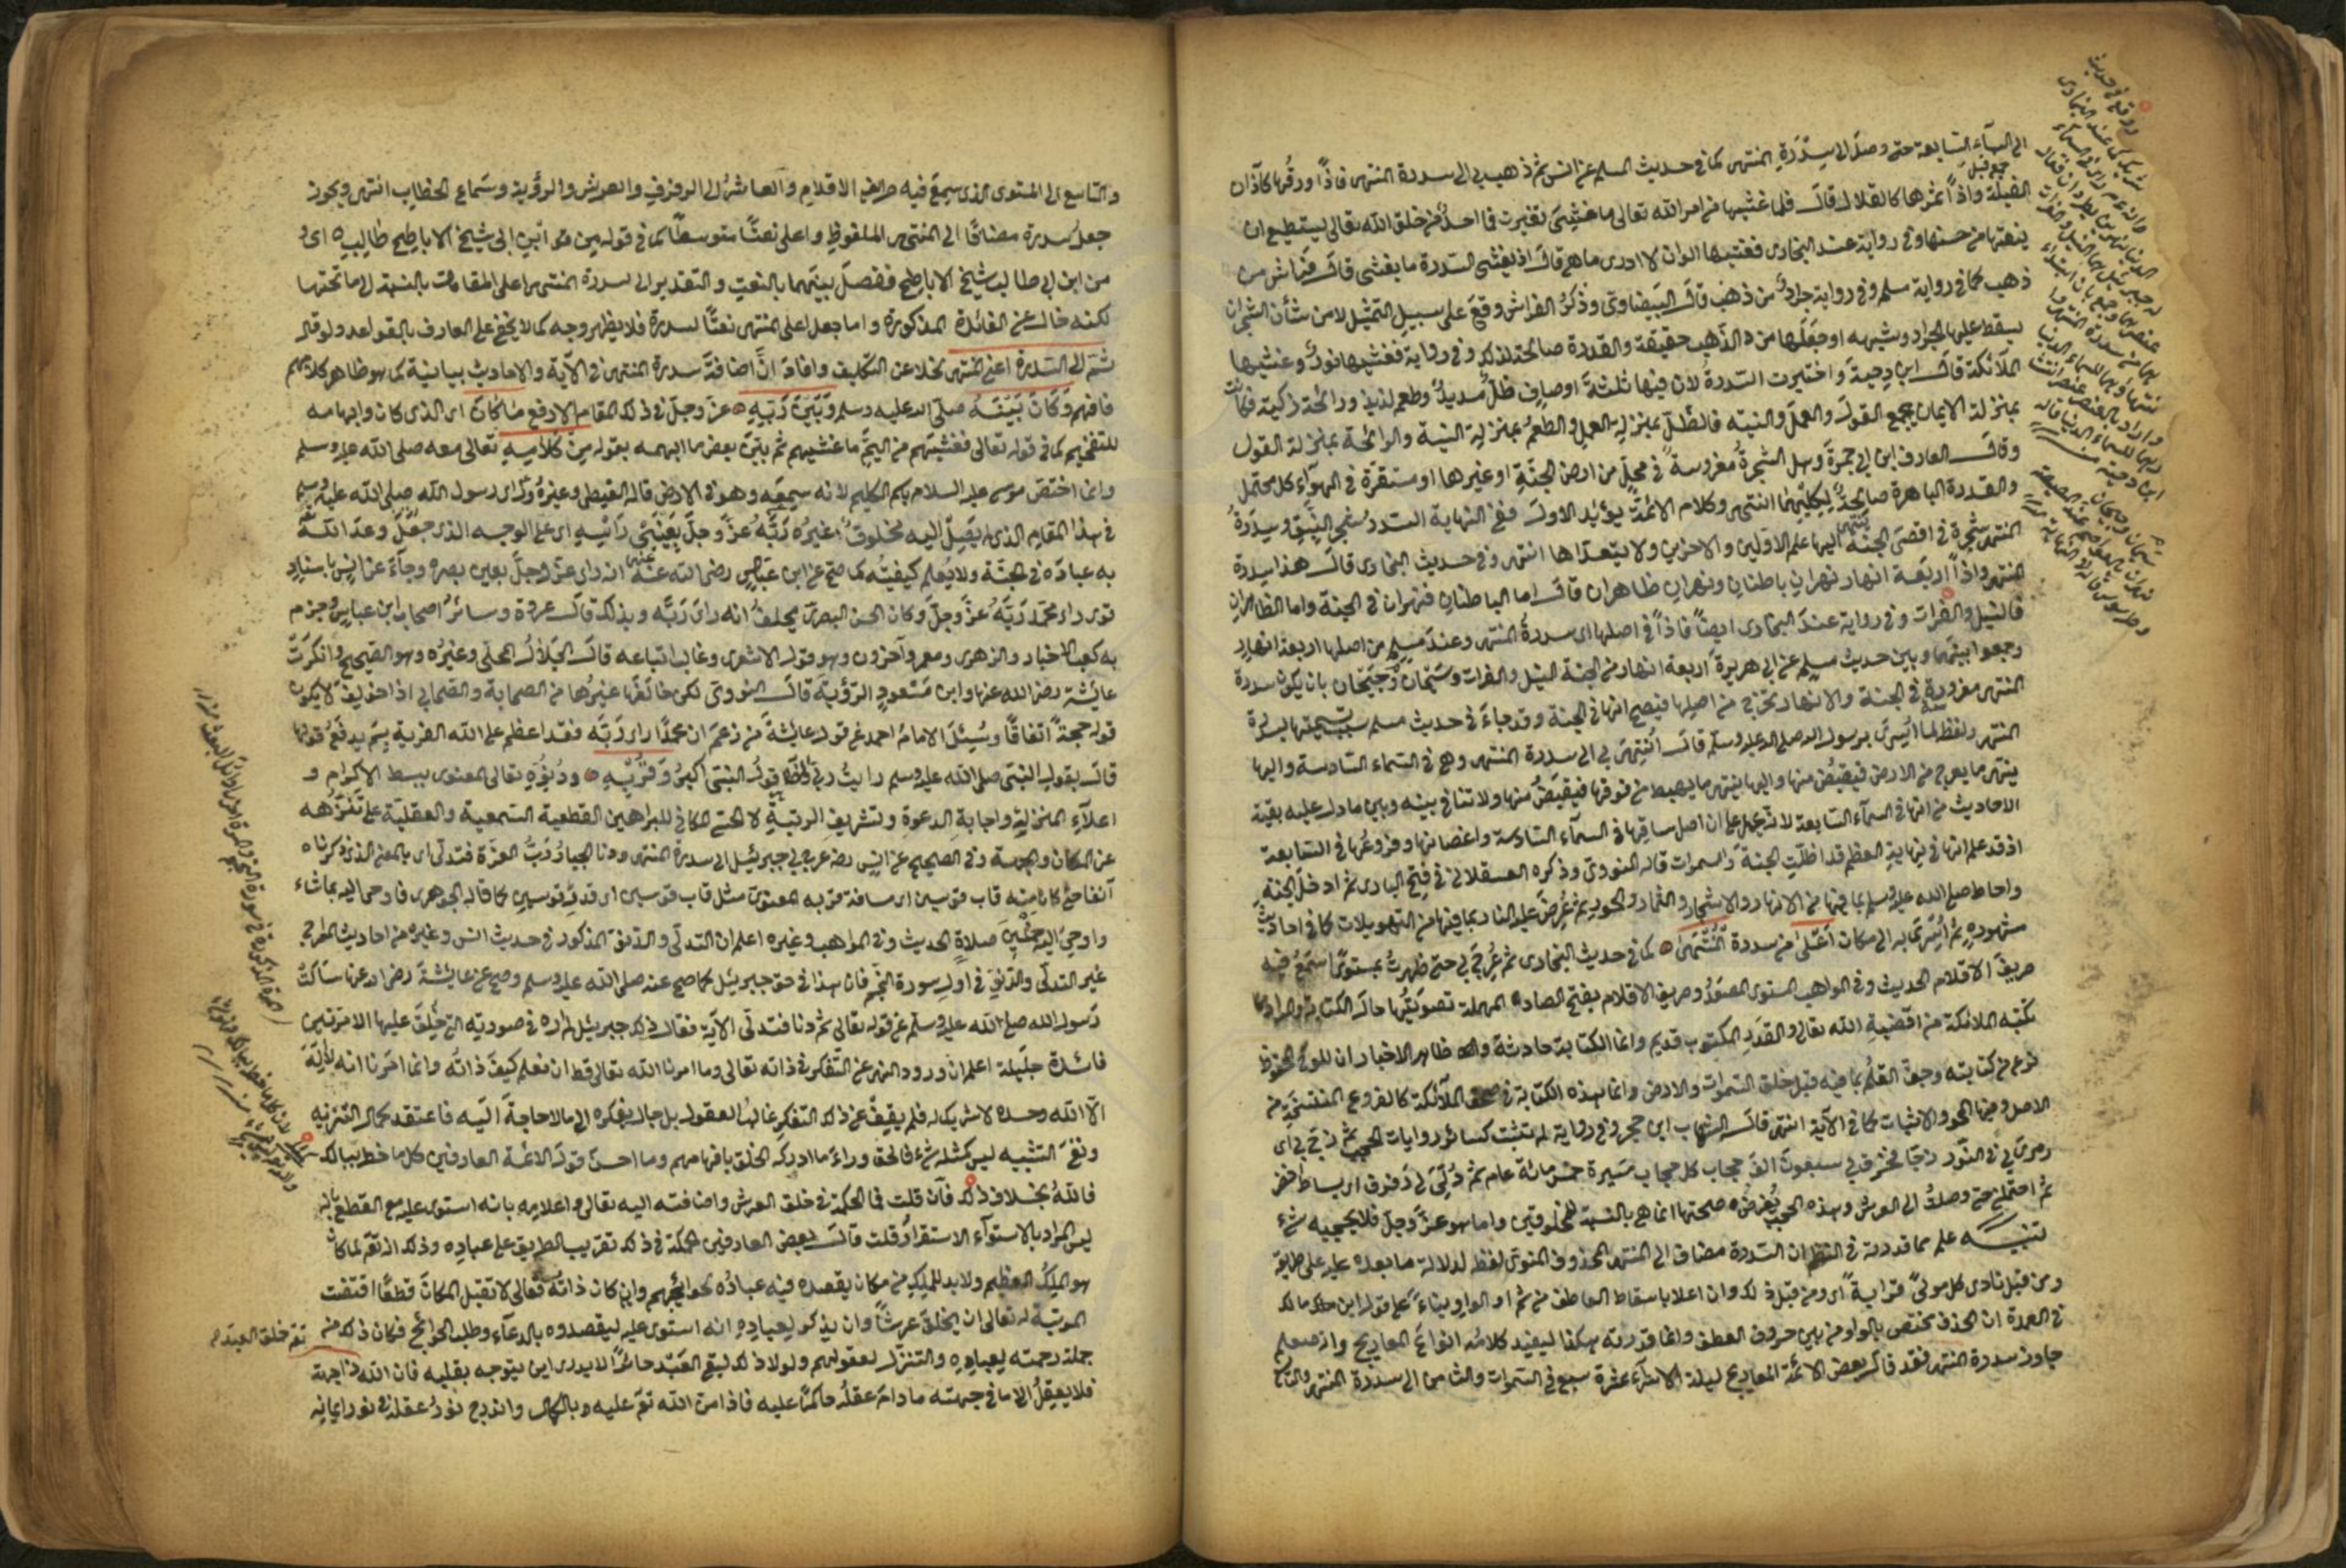 الى السماء السابعة حتى وصل الى سِدْرَةِ المنتهى كما في حديث المسلم عن انس ثم ذهب بي الى سدرة المنتهى فاذا ورقُها كآذان
الفيلة واذا ثمرها كالقلال قال فلما غشيها من امر الله تعالى ما غشيَ تغيرت فما احدٌ من خلق الله تعالى يستطيع ان
ينعتها من حسنها وفي رواية عند البخاري فغشيها الوان لا ادري ما هي قال اذ يغشى السدرة ما يغشى قال فراش من
ذهب كما في رواية مسلم وفي رواية جرادٌ من ذهب قال البيضاوي وذكرُ الفراش وقعَ على سبيل التمثيل لان من شأن الشجر ان
يسقط عليها الجراد وشبهه او جعَلَها من الذهب حقيقة والقدرة صالحة لذلك وفي رواية فغشيها نورٌ وغشيها
الملائكة قال ابن دِحية واختيرت السدرةُ لان فيها ثلثةَ اوصافٍ ظلٌّ مديدٌ وطعم لذيذ ورائحة ذكية فكانت
بمنزلة الايمان يجمع القولَ والعملَ والنية فالظلّ بمنزلة العمل والطعمُ بمنزلةِ النية والرائحة بمنزلة القول
وقال العارف ابن ابي جمرةَ وهل الشجرةُ مغروسةٌ في محلٍّ من ارض الجنّةِ او غيرها او مستقرة في الهواء كل محتمل
والقدرة الباهرة صالحةٌ لكليهما انتهى وكلام الائمة يؤيد الاول ففي النهاية السدرُ شجر النبق وسِدرةُ
المنتهى شجرة في اقصى الجنة ينتهي اليها علم الاولين والاخرين ولا يتعداها انتهى وفي حديث البخاري قال هذا سدرة
المنتهى واذا اربعة انهار نهران باطنان ونهران ظاهران قال اما الباطنان فنهران في الجنة واما الظاهران
فالنيل والفرات وفي رواية عندَ البخاري ايضًا فاذا في اصلها اى سدرةُ المنتهى وعندَ مسلم من اصلها اربعة انهار
وجمعوا بينهما وبين حديث مسلم عن ابي هريرة اربعة انهار من الجنة النيل والفرات وسَيحان وجَيحان بان يكون سدرة
المنتهى مغروزة في الجنة والانهار تخرج من اصلها فيصح انها في الجنة وقد جاءَ في حديث مسلم تسميتها بسدرة
المنتهى ولفظ لما اُسريَ برسول الله صلى الله عليه وسلم قال انتهيَ بي الى سدرة المنتهى وهي في السماء السادسة واليها
ينتهي ما يعرج من الارض فيقبض منها واليها ينتهي ما يهبط من فوقها فيقبض منها ولا تنافي بينه وبين ما دل عليه بقية
الاحاديث من انها في السماء السابعة لانه يحمل على ان اصل ساقها في السماء السادسة واغصانها وفروعُها في السابعة
اذ قد علم انها في نهاية العظم قد اظلّت الجنة والسموات قاله النووي وذكره العسقلاني في فتح الباري ثم ادخل الجنة
واحاط صلى الله عليه وسلم بما فيها من الانهار والاشجار والثمار والحور ثم عُرِضَ عليه النار بما فيها من التهويلات كما في احاديث
مشهودةٍ ثم اُسري به الى مكان اَعْلى من سدرة المُنْتَهى كما في حديث البخاري ثم عُرِجَ بي حتى ظهرتُ بمستوًى اسمع فيه
صريف الاقلام الحديث وفي المواهب المستوى المصعَدُ وصريف الاقلام بفتح الصاد المهملة تصويتُها حال الكتابة والمراد
تكتبه الملائكة من اقضيةِ الله تعالى والقَدَرِ المكتوب قديم وانما الكتابة حادثة وظاهر الاخبار ان اللوح المحفوظ
فرغ من كتابته وجفّ القلمُ بما فيه قبل خلق السموات والارض وانما هذه الكتابة في صحف الملائكة كالفروع المنتسخة من
الاصل وفيها المحو والاثبات كما في الآية انتهى قال الشهاب ابن حجر وفي رواية لم تثبت كسائر روايات الحجب ثم زجّ بي اى
رمى بي في النور زجًا فخرق بي سبعون الف حجاب كل حجاب مسيرة خمس مائة عام ثم دُلّيَ لي رَفرف اى بساط اخضر
ثم احتملني حتى وصلتُ الى العرش وهذه الحجب بفرض صحتها انما هي بالنسبة للمخلوقين واما هو عزّ وجلّ فلا يحجبه شيء
تنبيه علم مما قدرته في النظم ان السدرة مضاف الى المنتهى المحذوف المنوي لفظه لدلالة ما بعده عليه على طريقة
ومن قبل نادى كل مولىً قرابةً اى ومن قبل ذلك وان اعلا باسقاط العاطف من ثم او الواو بناءً على قول ابن مالك
في العمدة ان الحذف تختص بالواو من بين حروف العطف وانما قدرته هكذا ليفيد كلامُه انواعَ المعاريج وانه صلعم
جاوز سدرة المنتهى فقد قال بعض الائمة المعاريج ليلة الاسراء عشرة سبع في السموات والثامن الى سدرة المنتهى والتاسع
والتاسع الى المستوى الذي سمِعَ فيه صريف الاقلام والعاشرُ الى الرفرفِ والعرشِ والرؤية وسَماعِ الخطابِ انتهى ويجوز
جعل سدرة مضافًا الى المنتهى الملفوظ واعلى نعتًا متوسطًا كما في قوله من ابنِ ابي شيخ الاباطح طالبِ اىْ
من ابن ابي طالب شيخ الاباطح ففصل بينهما بالنعت والتقدير الى سدرة المنتهى اعلى المقامات بالنسبة الى ما تحتها
لكنه خال عن الفائدة المذكورة واما جعل اعلى المنتهى نعتًا لسدرة فلا يظهر وجه كما لا يخفى على العارف بالقواعد ولو قال
ثمّ الى السدرة اعني المنتهى لخلا عن التكليف وافادَ انّ اضافةَ سدرة المنتهى في الآية والاحاديث بيانية كما هو ظاهر كلامهم
فافهم وَكَانَ بَيْنَهُ صلى الله عليه وسلم وَبَيْنَ رَبّهِ عزّ وجلّ في ذلك المقام الارفع مَا كَانَ اى الذي كان وابهامه
للتفخيم كما في قوله تعالى فغشيهم من اليمّ ما غشيهم ثم بيّن بعض ما ابهمه بقوله مِنْ كَلَامِهِ تعالى معه صلى الله عليه وسلم
وانما اختصّ موسى عليه السلام باسم الكليم لانه سمعَه وهو في الارض قاله الغيطي وغيرُه ورأى رسول الله صلى الله عليه وسلم
في هذا المقام الذي لم يَصِلْ اليه مخلوقٌ غيرُه رَبَّهُ عزّ وجلّ بِعَيْنَيْ رَأسِهِ اى على الوجه الذي
به عبادَه في الجنّة ولا يُعلم كيفيتُه كما صحّ عن ابن عباسٍ رضي الله عنهما انه رأى عزّ وجلّ بعين بصره وجاءَ عن انس باسنادٍ
قوى رأى محمّد رَبَّهُ عزّ وجلّ وكان الحسن البصرىّ يحلفُ انه رأى رَبَّه وبذلك قال عروة وسائرُ اصحاب ابن عباس وجزم
به كعب الاخبار والزهرى ومعمر وآخرون وهو قول الاشعرى وغالب اتباعه قال الجَلالُ المحلّي وغيرُه وهو الصحيح وانكرتْ
عائشة رضي الله عنها وابن مَسْعودٍ الرّؤيةَ قال النووى لكن خالَفَها غيرُها من الصحابة والصحابي اذا خولِفَ لا يكون
قوله حجةً اتفاقًا وسُئِلَ الامامُ احمد عن قول عائشةَ من زعَمَ ان محمّدًا رأى رَبّه فقد اعظم على الله الفرية بِمَ يدفَعُ قولها
قال بقولِ النبيّ صلى الله عليه وسلم رأيتُ ربي قولُ النبيّ اكبرُ وَقُرْبِهِ ودُنُوّهِ تعالى المعنوى ببسط الاكرام و
اعلاءِ المنزلةِ واجابةِ الدعوة وتشريفِ الرتبةِ لا الحسّي المكاني للبراهين القطعية السّمعية والعقليّة على تَنَزُّهه
عن المكان والجهة وفي الصحيح عن انس رضه عرج بي جبرئيل الى سدرة المنتهى ودنا الجبارُ رَبُّ العزّة فتدلّى اى بالمعنى الذي ذكرناه
آنفًا حتى كان منه قاب قوسين اى مسافة قربه المعنوىّ مثل قاب قوسين اى قدر قوسين كما قاله الجوهرى فاوحى اليه بما شاء
واوحى اليه خمسين صلاة الحديث وفي المواهب وغيره اعلم ان التدلّي والدنوّ المذكور في حديث انس وغيره من احاديث المعراج
غير التدلّي والدّنوّ في اول سورة النجم فان هذا في حق جبريئل كما صح عنه صلى الله عليه وسلم وصح عن عائشةَ رضي الله عنها سألتُ
رَسول الله صلى الله عليه وسلم عن قوله تعالى ثم دنا فتدلّى الآية فقال ذلك جبرئيل لم اره في صورته التي خُلِقَ عليها الا مرّتين
فائدة جليلة اعلم ان ورود النهي عن التّفكر في ذاته تعالى وما امرنا الله تعالى قط ان نعلم كيفَ ذاتُه وانما امَرنا انه لا الٰهَ
الّا الله وحده لا شريك له فلم يقِفْ عن ذلك التفكر غالبُ العقول بل جال بفكره الى ما لا حاجةَ اليه فاعتقد كمال التنزيه
ونفيَ التشبيه ليس كمثله شيء فالحق وراءَ ما ادركه الخلق بافهامهم وما احسنَ قولَ الائمة العارفين كل ما خطر ببالك
فاللهُ بخلاف ذلك فان قلت فما الحكمة في خلق العرش واضافته اليه تعالى واعلامه بانه استوى عليه مع القطع بانه
ليس المراد بالاستواء الاستقرارَ قلت قال بعض العارفين الحكمة في ذلك تقريب الطريق على عبادِه وذلك انه تع لما كان
هو المَلِكُ العظيم ولا بد للملِك من مكان يقصده فيه عبادُه لحوائجهم وان كان ذاتُه تعالى لا تقبل المكانَ قطعًا اقتضت
المرتبة له تعالى ان يخلقَ عرشًا وان يذكر لعباده انه استوى عليه ليقصدوه بالدعاء وطلب الحوائج فكان ذلك من
جملة رحمته لعباده والتنزّل لعقولهم ولولا ذلك لبقي العَبْد حائرًا لا يدرى اين يتوجه بقلبه فان الله
فلا يعقِلُ الا ما في جهته ما دامَ عقلُه حاكمًا عليه فاذا منّ الله تع عليه بالكمال واندرج نورُ عقله في نور ايمانه
تع خلق العبد